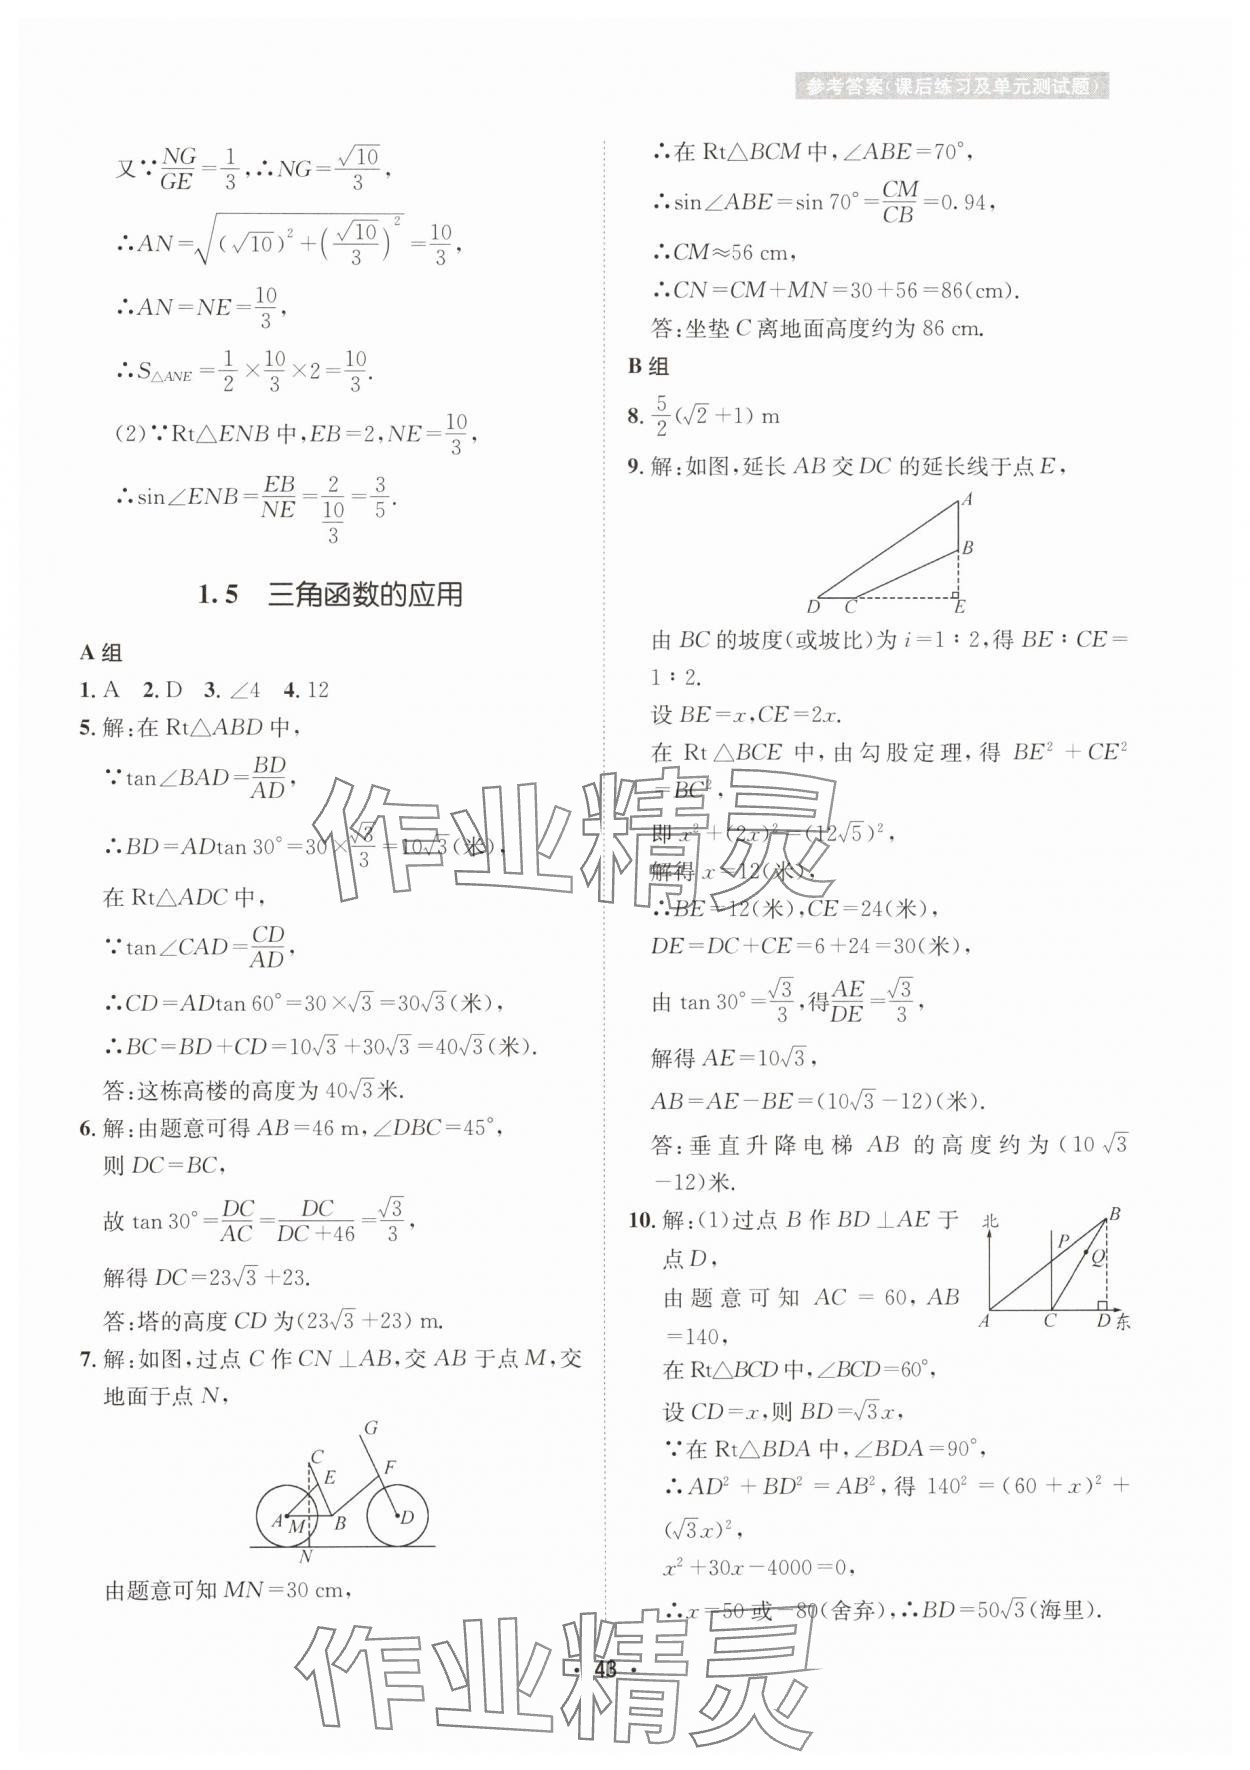 参考答案(课后练习及单元测试题)
又∵NG/GE=1/3,∴NG=√10/3,
∴AN=√((√10)²+(√10/3)²)=10/3,
∴AN=NE=10/3,
∴S△ANE=1/2×10/3×2=10/3.
(2)∵Rt△ENB中,EB=2,NE=10/3,
∴sin∠ENB=EB/NE=2/(10/3)=3/5.
1.5 三角函数的应用
A组
1.A 2.D 3.∠4 4.12
5.解:在Rt△ABD中,
∵tan∠BAD=BD/AD,
∴BD=ADtan 30°=30×√3/3=10√3(米),
在Rt△ADC中,
∵tan∠CAD=CD/AD,
∴CD=ADtan 60°=30×√3=30√3(米),
∴BC=BD+CD=10√3+30√3=40√3(米).
答:这栋高楼的高度为40√3米.
6.解:由题意可得AB=46 m,∠DBC=45°,
则DC=BC,
故tan 30°=DC/AC=DC/(DC+46)=√3/3,
解得DC=23√3+23.
答:塔的高度CD为(23√3+23) m.
7.解:如图,过点C作CN⊥AB,交AB于点M,交
地面于点N,
G
C
E
F
A
M
B
D
N
由题意可知MN=30 cm,
∴在Rt△BCM中,∠ABE=70°,
∴sin∠ABE=sin 70°=CM/CB=0.94,
∴CM≈56 cm,
∴CN=CM+MN=30+56=86(cm).
答:坐垫C离地面高度约为86 cm.
B组
8.5/2(√2+1) m
9.解:如图,延长AB交DC的延长线于点E,
A
B
D C E
由BC的坡度(或坡比)为i=1∶2,得BE∶CE=
1∶2.
设BE=x,CE=2x.
在Rt△BCE中,由勾股定理,得BE²+CE²
=BC²,
即x²+(2x)²=(12√5)²,
解得x=12(米),
∴BE=12(米),CE=24(米),
DE=DC+CE=6+24=30(米),
由tan 30°=√3/3,得AE/DE=√3/3,
解得AE=10√3,
AB=AE-BE=(10√3-12)(米).
答:垂直升降电梯AB的高度约为(10√3
-12)米.
10.解:(1)过点B作BD⊥AE于
点D,
由题意可知AC=60,AB
=140,
北
B
P
Q
A C D 东
在Rt△BCD中,∠BCD=60°,
设CD=x,则BD=√3x,
∵在Rt△BDA中,∠BDA=90°,
∴AD²+BD²=AB²,得140²=(60+x)²+
(√3x)²,
x²+30x-4000=0,
∴x=50或-80(舍弃),∴BD=50√3(海里).
作业精灵
作业精灵
· 43 ·